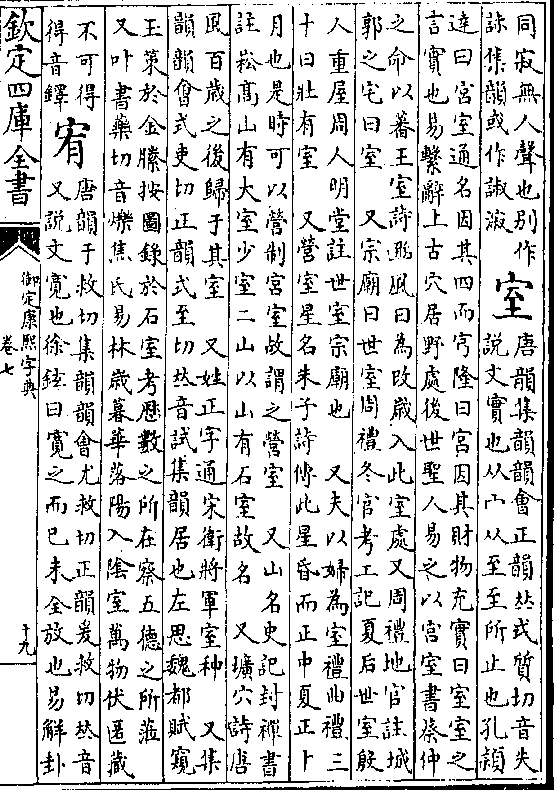 同寂無人聲也別作
詸集韻或作諔淑
室
唐韻集韻韻會正韻𠀤式質切音失
說文實也从宀从至至所止也孔穎
達曰宮室通名因其四面穹隆曰宮因其財物充實曰室室之
言實也易繫辭上古穴居野處後世聖人易之以宮室書蔡仲
之命以蕃王室詩豳風曰為改歲入此室處又周禮地官註城
郭之宅曰室　又宗廟曰世室周禮冬官考工記夏后世室殷
人重屋周人明堂註世室宗廟也　又夫以婦為室禮曲禮三
十曰壯有室　又營室星名朱子詩傳此星昏而正中夏正卜
月也是時可以營制宮室故謂之營室　又山名史記封禪書
註崧高山有大室少室二山以山有石室故名　又壙穴詩唐
風百歲之後歸于其室　又姓正字通宋衛將軍室种　又集
韻韻會式吏切正韻式至切𠀤音試集韻居也左思魏都賦窺
玉策於金縢按圖錄於石室考歷數之所在察五德之所蒞
又叶書藥切音爍焦氏易林歲暮華落陽入陰室萬物伏匿藏
不可得
得音鐸
宥
唐韻于救切集韻韻會尤救切正韻爰救切𠀤音
又說文寬也徐鉉曰寬之而已未全放也易解卦
欽定四庫全書
御定康熙字典
卷七
十九